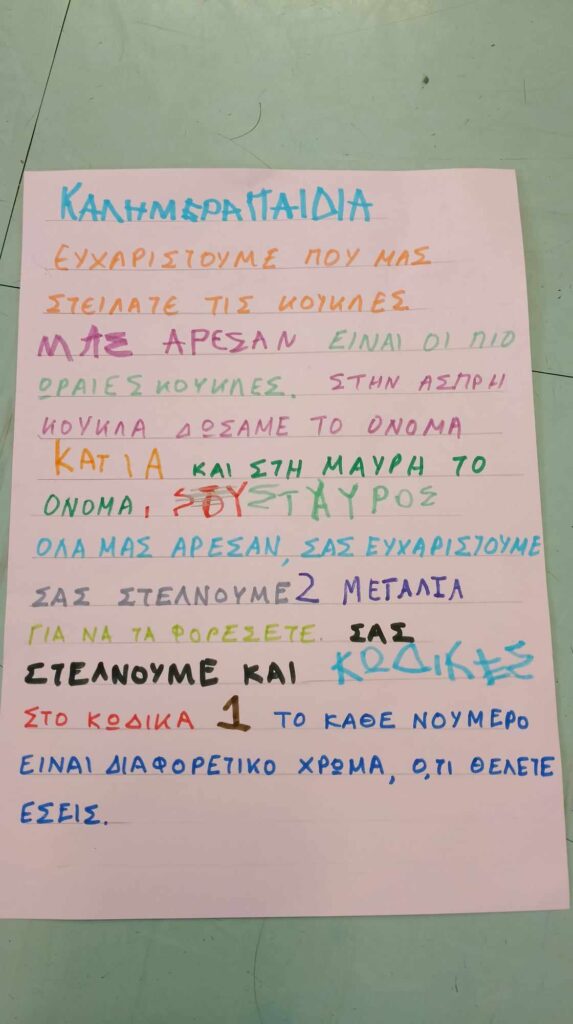 ΚΑΛΗΜΕΡΑ ΠΑΙΔΙΑ
ΕΥΧΑΡΙΣΤΟΥΜΕ ΠΟΥ ΜΑΣ
ΣΤΕΙΛΑΤΕ ΤΙΣ ΚΟΥΚΛΕΣ
ΜΑΣ ΑΡΕΣΑΝ ΕΙΝΑΙ ΟΙ ΠΙΟ
ΩΡΑΙΕΣ ΚΟΥΚΛΕΣ. ΣΤΗΝ ΑΣΠΡΗ
ΚΟΥΚΛΑ ΔΩΣΑΜΕ ΤΟ ΟΝΟΜΑ
ΚΑΤΙΑ ΚΑΙ ΣΤΗ ΜΑΥΡΗ ΤΟ
ΟΝΟΜΑ, ΣΤΑΥΡΟΣ
ΟΛΑ ΜΑΣ ΑΡΕΣΑΝ, ΣΑΣ ΕΥΧΑΡΙΣΤΟΥΜΕ
ΣΑΣ ΣΤΕΛΝΟΥΜΕ 2 ΜΕΤΑΛΙΑ
ΓΙΑ ΝΑ ΤΑ ΦΟΡΕΣΕΤΕ. ΣΑΣ
ΣΤΕΛΝΟΥΜΕ ΚΑΙ ΚΩΔΙΚΕΣ
ΣΤΟ ΚΩΔΙΚΑ 1 ΤΟ ΚΑΘΕ ΝΟΥΜΕΡΟ
ΕΙΝΑΙ ΔΙΑΦΟΡΕΤΙΚΟ ΧΡΩΜΑ, Ο,ΤΙ ΘΕΛΕΤΕ
ΕΣΕΙΣ.